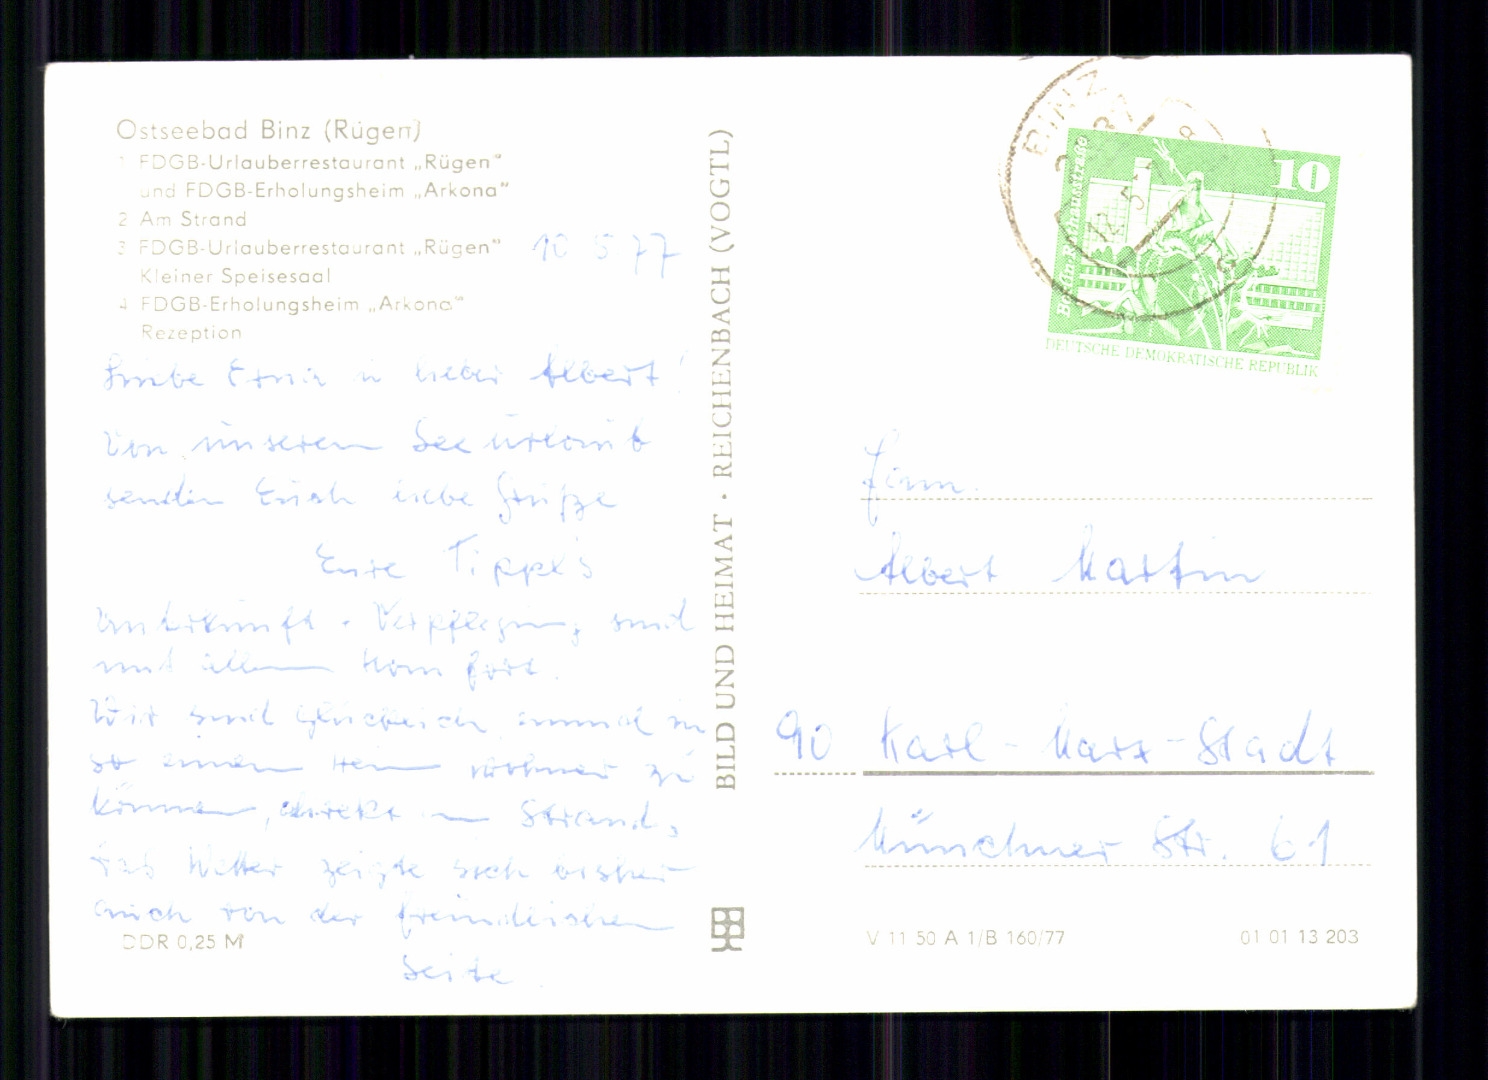 Ostseebad Binz (Rügen)
1 FDGB-Urlauberrestaurant „Rügen“
und FDGB-Erholungsheim „Arkona“
2 Am Strand
3 FDGB-Urlauberrestaurant „Rügen“
Kleiner Speisesaal
4 FDGB-Erholungsheim „Arkona“
Rezeption
10 5 77
Liebe u lieber Albert!
Von unserem Seeurlaub
senden Euch liebe Grüße
Eure Tippl's
Unterkunft + Verpflegung sind
mit allem Komfort.
Wir sind glücklich, einmal in
so einem Heim wohnen zu
können, direkt am Strand,
das Wetter zeigte sich bisher
auch von der freundlichen
Seite.
DDR 0,25 M
BILD UND HEIMAT · REICHENBACH (VOGTL)
BINZ
12.5
10
DEUTSCHE DEMOKRATISCHE REPUBLIK
Fam.
Albert Martin
90 Karl-Marx-Stadt
Münchner Str. 61
V 11 50 A 1/B 160/77
01 01 13 203